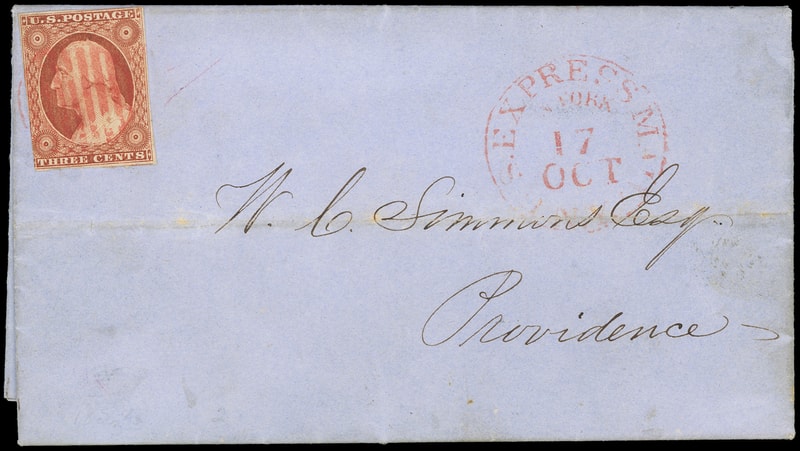 U.S. POSTAGE
THREE CENTS
EXPRESS M
YORK
17
OCT
W. C. Simmons Esq.
Providence